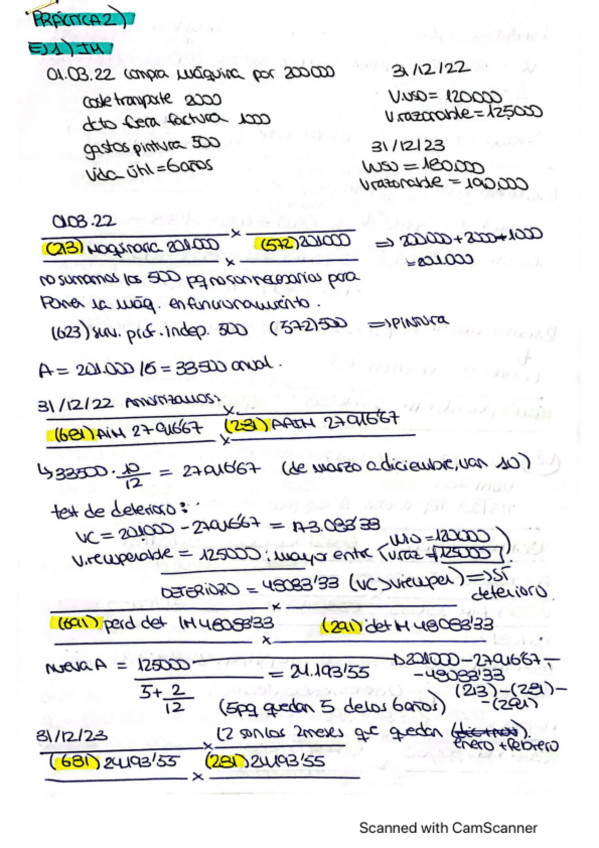 PRÁCTICA 2)
EJ.1) IM
01.03.22 compra máquina por 200000
31/12/22
coste transporte 2000
V.uso = 120000
dcto fuera factura 1000
V.razonable = 125000
gastos pintura 500
31/12/23
Vida útil = 6 años
V.uso = 180.000
V.razonable = 190.000
01.03.22
(213) Maquinaria 201.000 x (572) 201.000 => 200000 + 2000 - 1000
= 201.000
no sumamos los 500 pq no son necesarios para
poner la máq. en funcionamiento.
(623) serv. prof. indep. 500 (572) 500 => PINTURA
A = 201.000 / 6 = 33500 anual.
31/12/22 Amortizamos:
(681) AIM 27916'67 x (281) AAIM 27916'67
↳ 33500 · 10/12 = 27916'67 (de marzo a diciembre, van 10)
test de deterioro:
VC = 201000 - 27916'67 = 173.083'33
V.recuperable = 125000: mayor entre (V.uso = 120000
V.raz = 125000)
DETERIORO = 48083'33 (VC > V.recuper) => SÍ
deterioro.
(691) perd det IM 48083'33 x (291) det IM 48083'33
nueva A = 125000 / 5 + 2/12 = 24.193'55
201000 - 27916'67 -
- 48083'33
(213) - (281) -
- (291)
(5 pq quedan 5 de los 6 años)
31/12/23
(2 son los 2 meses q quedan
enero + febrero).
(681) 24193'55 x (281) 24193'55
Scanned with CamScanner